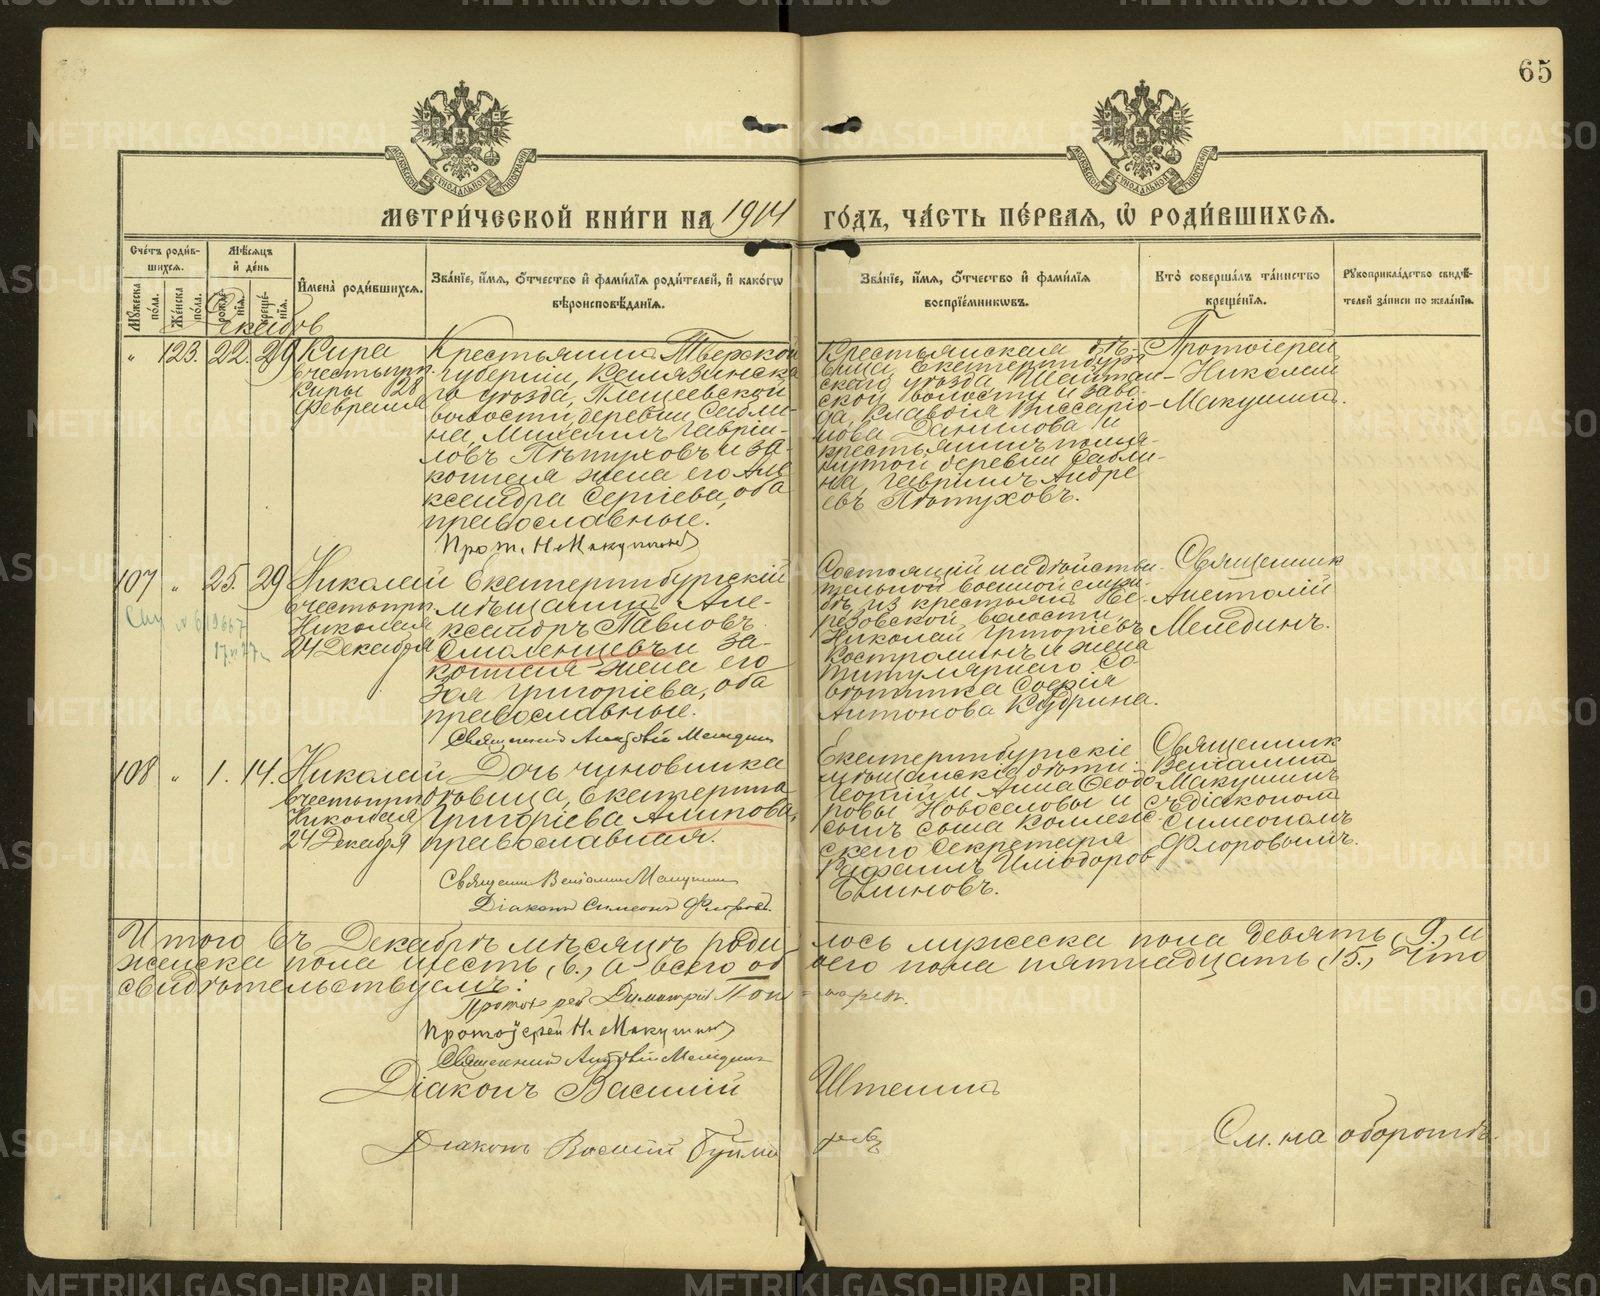 65
МЕТРИ́ЧЕСКОЙ КНИ́ГИ НА 1914 ГО́ДЪ, ЧА́СТЬ ПЕ́РВАЯ, Ѡ҆ РОДИ́ВШИХСЯ.
Сче́тъ роди́в-
шихся.
Мꙋ́жеска по́ла.
Же́нска по́ла.
Мѣ́сяцъ
и҆ де́нь
рожде́нія.
креще́нія.
И҆мена̀ роди́вшихся.
Зва́ніе, и҆́мя, ѻ҆́тчество и҆ фами́лія роди́телей, и҆ како́гѡ
вѣроисповѣ́данія.
Зва́ніе, и҆́мя, ѻ҆́тчество и҆ фами́лія
воспріе́мникѡвъ.
Кто̀ соверша́лъ та́инство
креще́нія.
Рꙋкоприкла́дство свидѣ́-
телей за́писи по жела́нію.
Декабрь
" 123. 22. 29
Кира
в честь прп.
Киры 28
Февраля
Крестьянинъ Тверской
губерніи, Калязинска
го уѣзда, Плещеевской
волости деревни Сабли-
на, Михаилъ Гавріи-
ловъ Пѣтуховъ и за-
конная жена его Але
ксандра Сергіева, оба
православные.
Прот. Н. Макушинъ
Крестьянская дѣ-
вица Екатеринбург
скаго уѣзда, Шайтан-
ской волости и заво-
да, Клавдія Виссаріо-
нова Данилова и
крестьянинъ помя-
нутой деревни Сабли-
на, Гавріилъ Андре
евъ Пѣтуховъ.
Протоіерей
Николай
Макушинъ.
107 " 25. 29
Николай
в честь прп.
Николая
24 Декабря
Екатеринбургскій
мѣщанинъ Але-
ксандръ Павловъ
Смоленцевъ и за-
конная жена его
Зоя Григоріева, оба
православные.
Священникъ Анатолій Мелединъ
Состоящій на дѣйстви-
тельной военной служ-
бѣ, из крестьянъ
волости,
Николай Григоріевъ
Костроминъ и жена
титулярнаго со
вѣтника Софія
Антонова Кудрина.
Священник
Анатолій
Мелединъ.
108 " 1. 14.
Николай
в честь прп.
Николая
24 Декабря
Дочь чиновника
дѣвица, Екатерина
Григоріева Алипова,
православная.
Священн. Веніамин Макушин
Діаконъ Симеонъ Флоровъ.
Екатеринбургскіе
мѣщанскіе дѣти:
Георгій и Анна Ѳеодо
ровы Новоселовы и
сынъ Коллеж
скаго Секретаря
Рафаилъ Иліодоров
Блиновъ.
Священник
Веніамин
Макушинъ
съ діакономъ
Симеономъ
Флоровымъ.
Итого въ Декабрѣ мѣсяцѣ роди-лось мужеска пола девять (9.) и
женска пола шесть (6.), а всего обоего пола пятнадцать (15.). Что
свидѣтельствуемъ:
Протоіерей Димитрій
Протоіерей Н. Макушинъ
Священникъ Анатолій Мелединъ
Діаконъ Василій
Діаконъ Василій
См. на оборотѣ.
METRIKI.GASO-URAL.RU